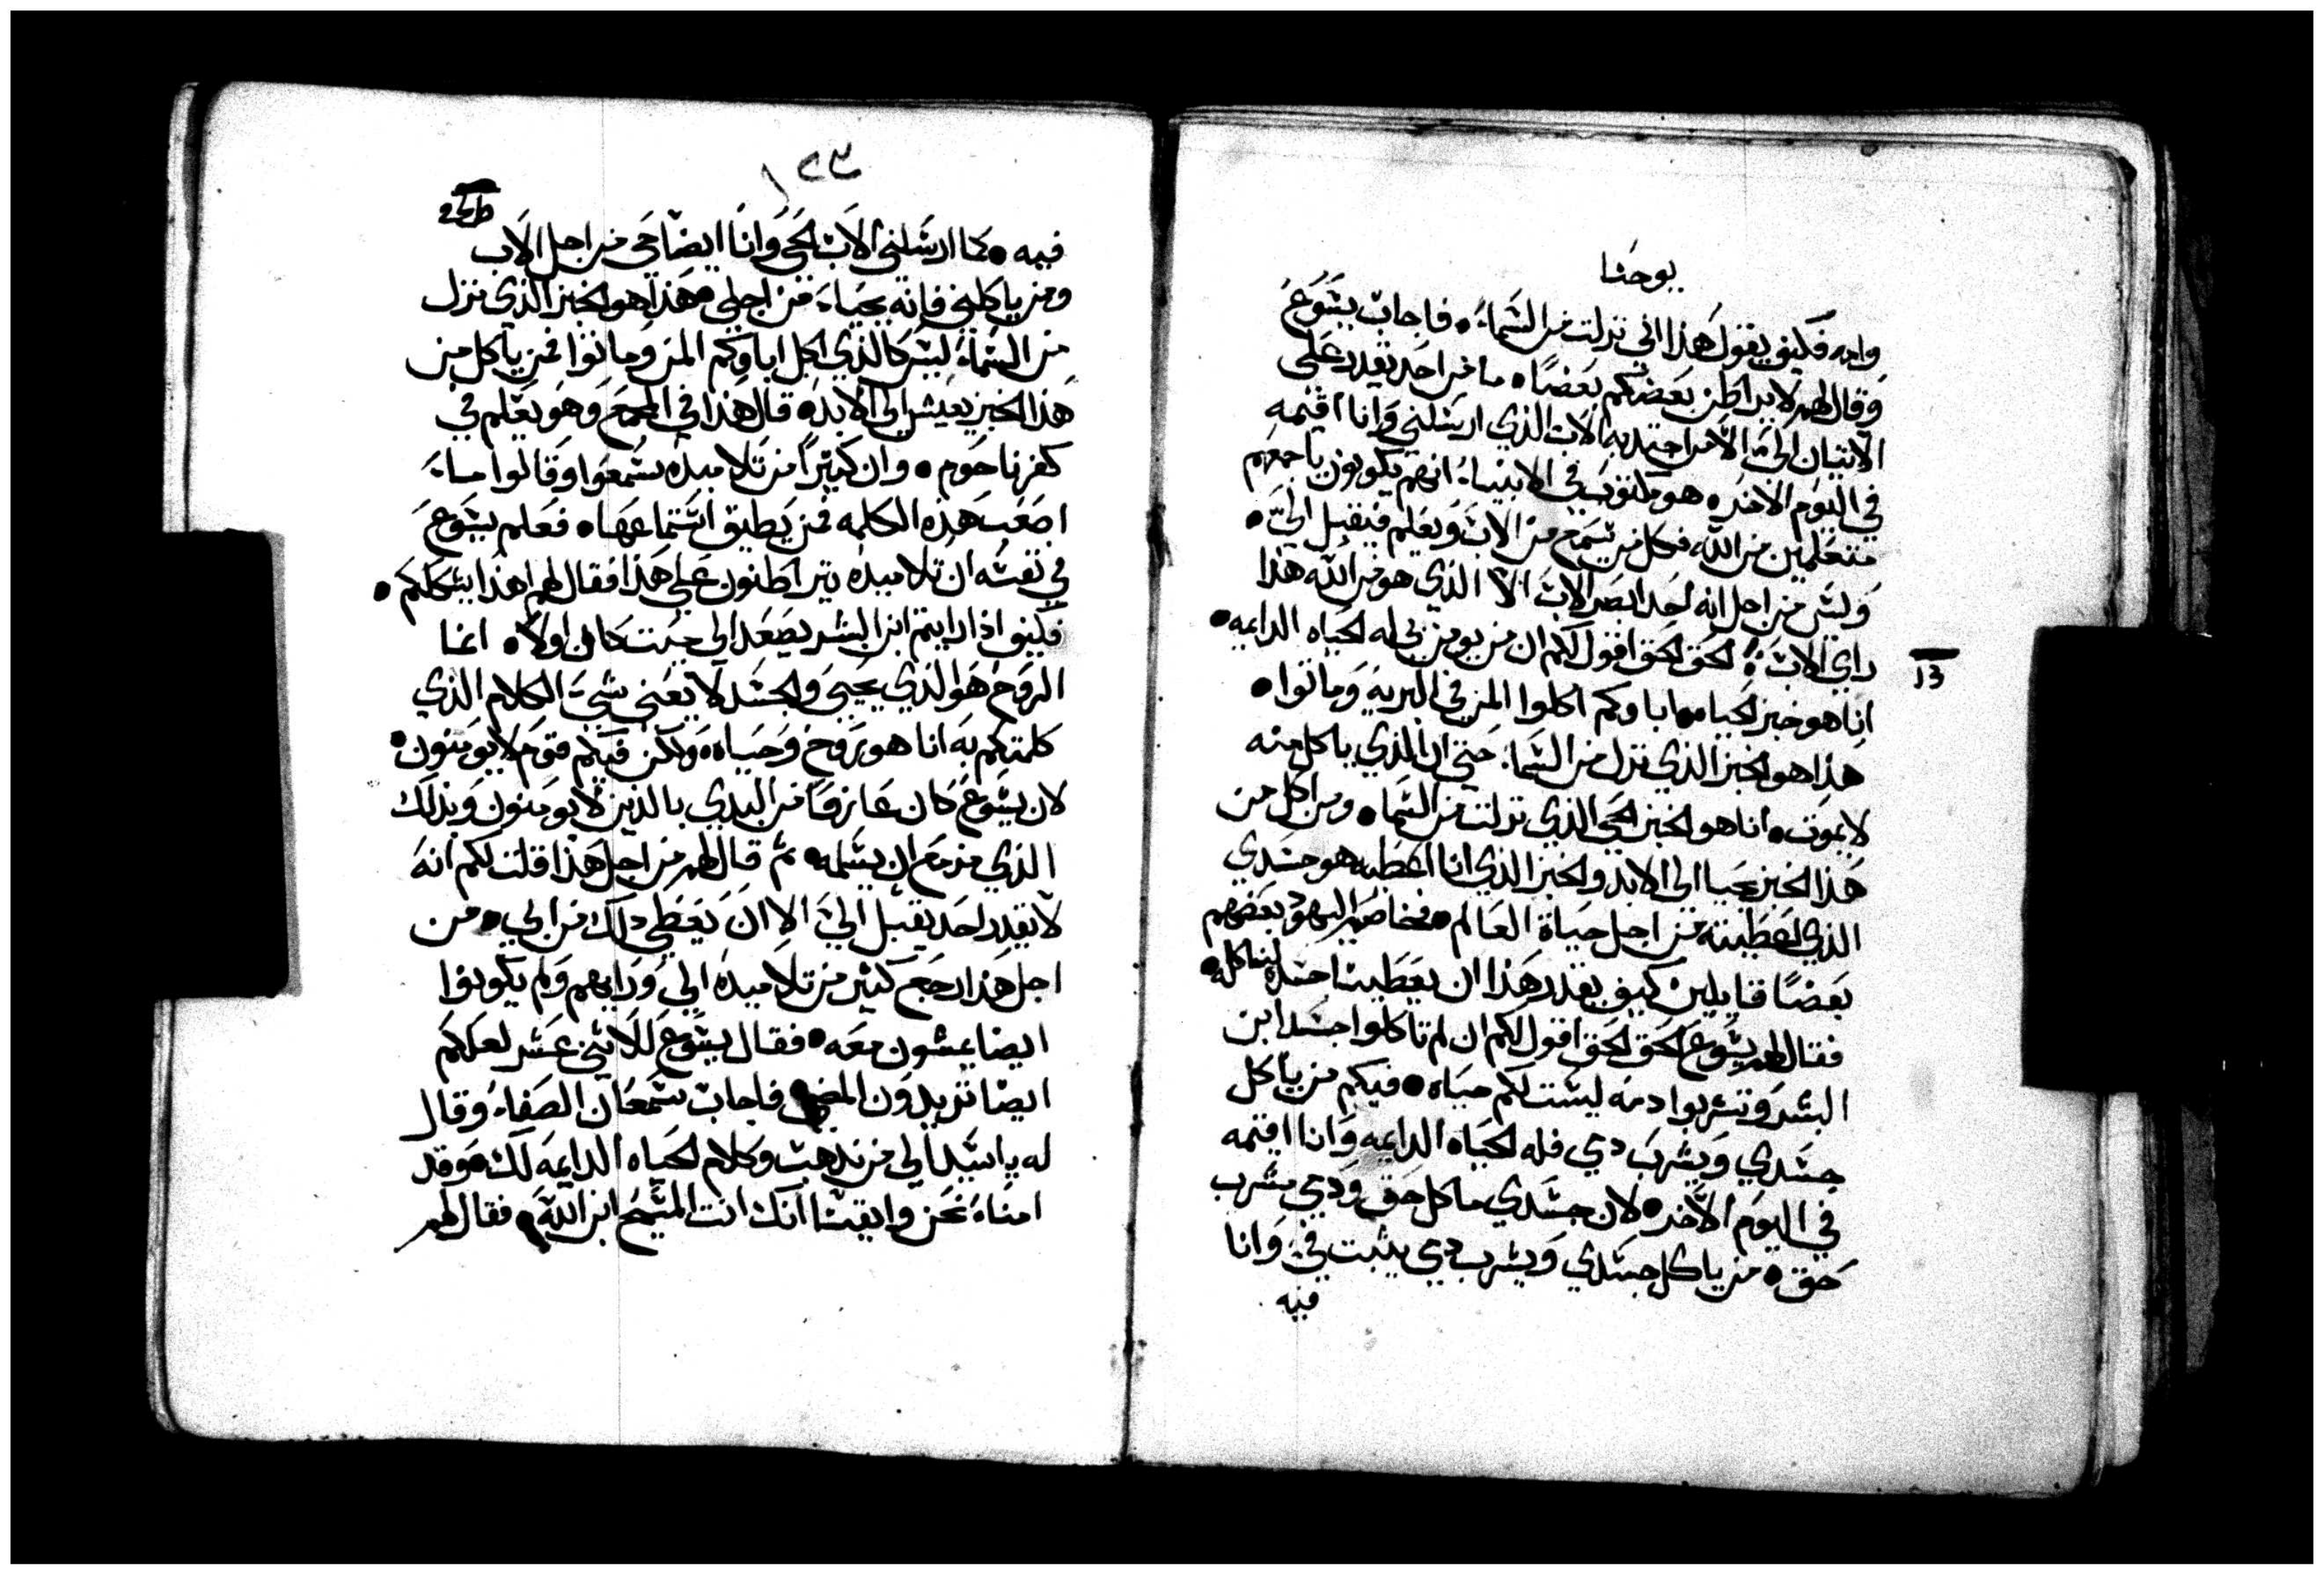 يوحنا
وامه فكيف يقول هذا اني نزلت من السماء • فاجاب يسوع
وقال لهم لا يراطن بعضكم بعضا • ما من احد يقدر على
الاتيان الي الا من اجتذبه الاب الذي ارسلني وانا اقيمه
في اليوم الاخر • هو مكتوب في الانبياء انهم يكونون باجمعهم
متعلمين من الله، فكل من يسمع من الاب ويعلم فيقبل الي •
وليس من اجل انه احد ابصر الاب الا الذي هو من الله هذا
راي الاب • الحق الحق اقول لكم ان من يومن بي له الحياه الدايمه •
13
انا هو خبز الحياه • اباوكم اكلوا المن في البريه وماتوا •
هذا هو الخبز الذي نزل من السما، حتي ان الذي ياكل منه
لا يموت • انا هو الخبز الحي الذي نزلت من السما • ومن اكل من
هذا الخبز يحيا الى الابد والخبز الذي انا اعطيه هو جسدي
الذي اعطيته من اجل حياة العالم • فخاصم اليهود بعضهم
بعضا قايلين كيف يقدر هذا ان يعطينا جسده لناكله •
فقال لهم يسوع الحق الحق اقول لكم ان لم تاكلوا جسد ابن
البشر وتشربوا دمه ليست لكم حياه • فيكم من ياكل
جسدي ويشرب دمي فله الحياه الدايمه وانا اقيمه
في اليوم الاخر • لان جسدي ماكل حق ودمي مشرب
حق • من ياكل جسدي ويشرب دمي يثبت في وانا
فيه
١٢٣
فيه • كما ارسلني الاب الحي وانا ايضا حي من اجل الاب
ومن ياكلني فانه يحياء من اجلي • هذا هو الخبز الذي نزل
من السماء ليس كالذي اكل اباوكم المن وماتوا فمن ياكل من
هذا الخبز يعيش الى الابد • قال هذا في المجمع وهو يعلم في
كفرناحوم • وان كثيرا من تلاميده سمعوا وقالوا ما
اصعب هذه الكلمه فمن يطيق استماعها • فعلم يسوع
في نفسه ان تلاميده يتراطنون على هذا فقال لهم اهذا يشككم •
فكيف اذا رايتم ابن البشر يصعد الى حيت كان اولا • انما
الروح هو الذي يحيى والجسد لا يعني شي الكلام الذي
كلمتكم به انا هو روح وحياه • ولكن فيكم قوم لا يومنون •
لان يسوع كان عارفا من البدي بالذين لا يومنون وبذلك
الذي مزمع ان يسلمه • ثم قال لهم من اجل هذا قلت لكم انه
لا يقدر احد يقبل الي الا ان يعطي ذلك من ابي • من
اجل هذا رجع كثير من تلاميده الي ورايهم ولم يكونوا
ايضا يمشون معه • فقال يسوع للاثني عشر لعلكم
ايضا تريدون المضي فاجاب سمعان الصفاء وقال
له يا سيد الي من ندهب وكلام الحياه الدايمه لك • وقد
امناء نحن وايقنا انك انت المسيح ابن الله • فقال لهم